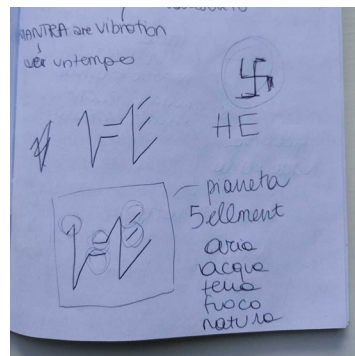 MANTRA are vibration
un tempo
HE
pianeta
5 element
aria
acqua
terra
fuoco
natura